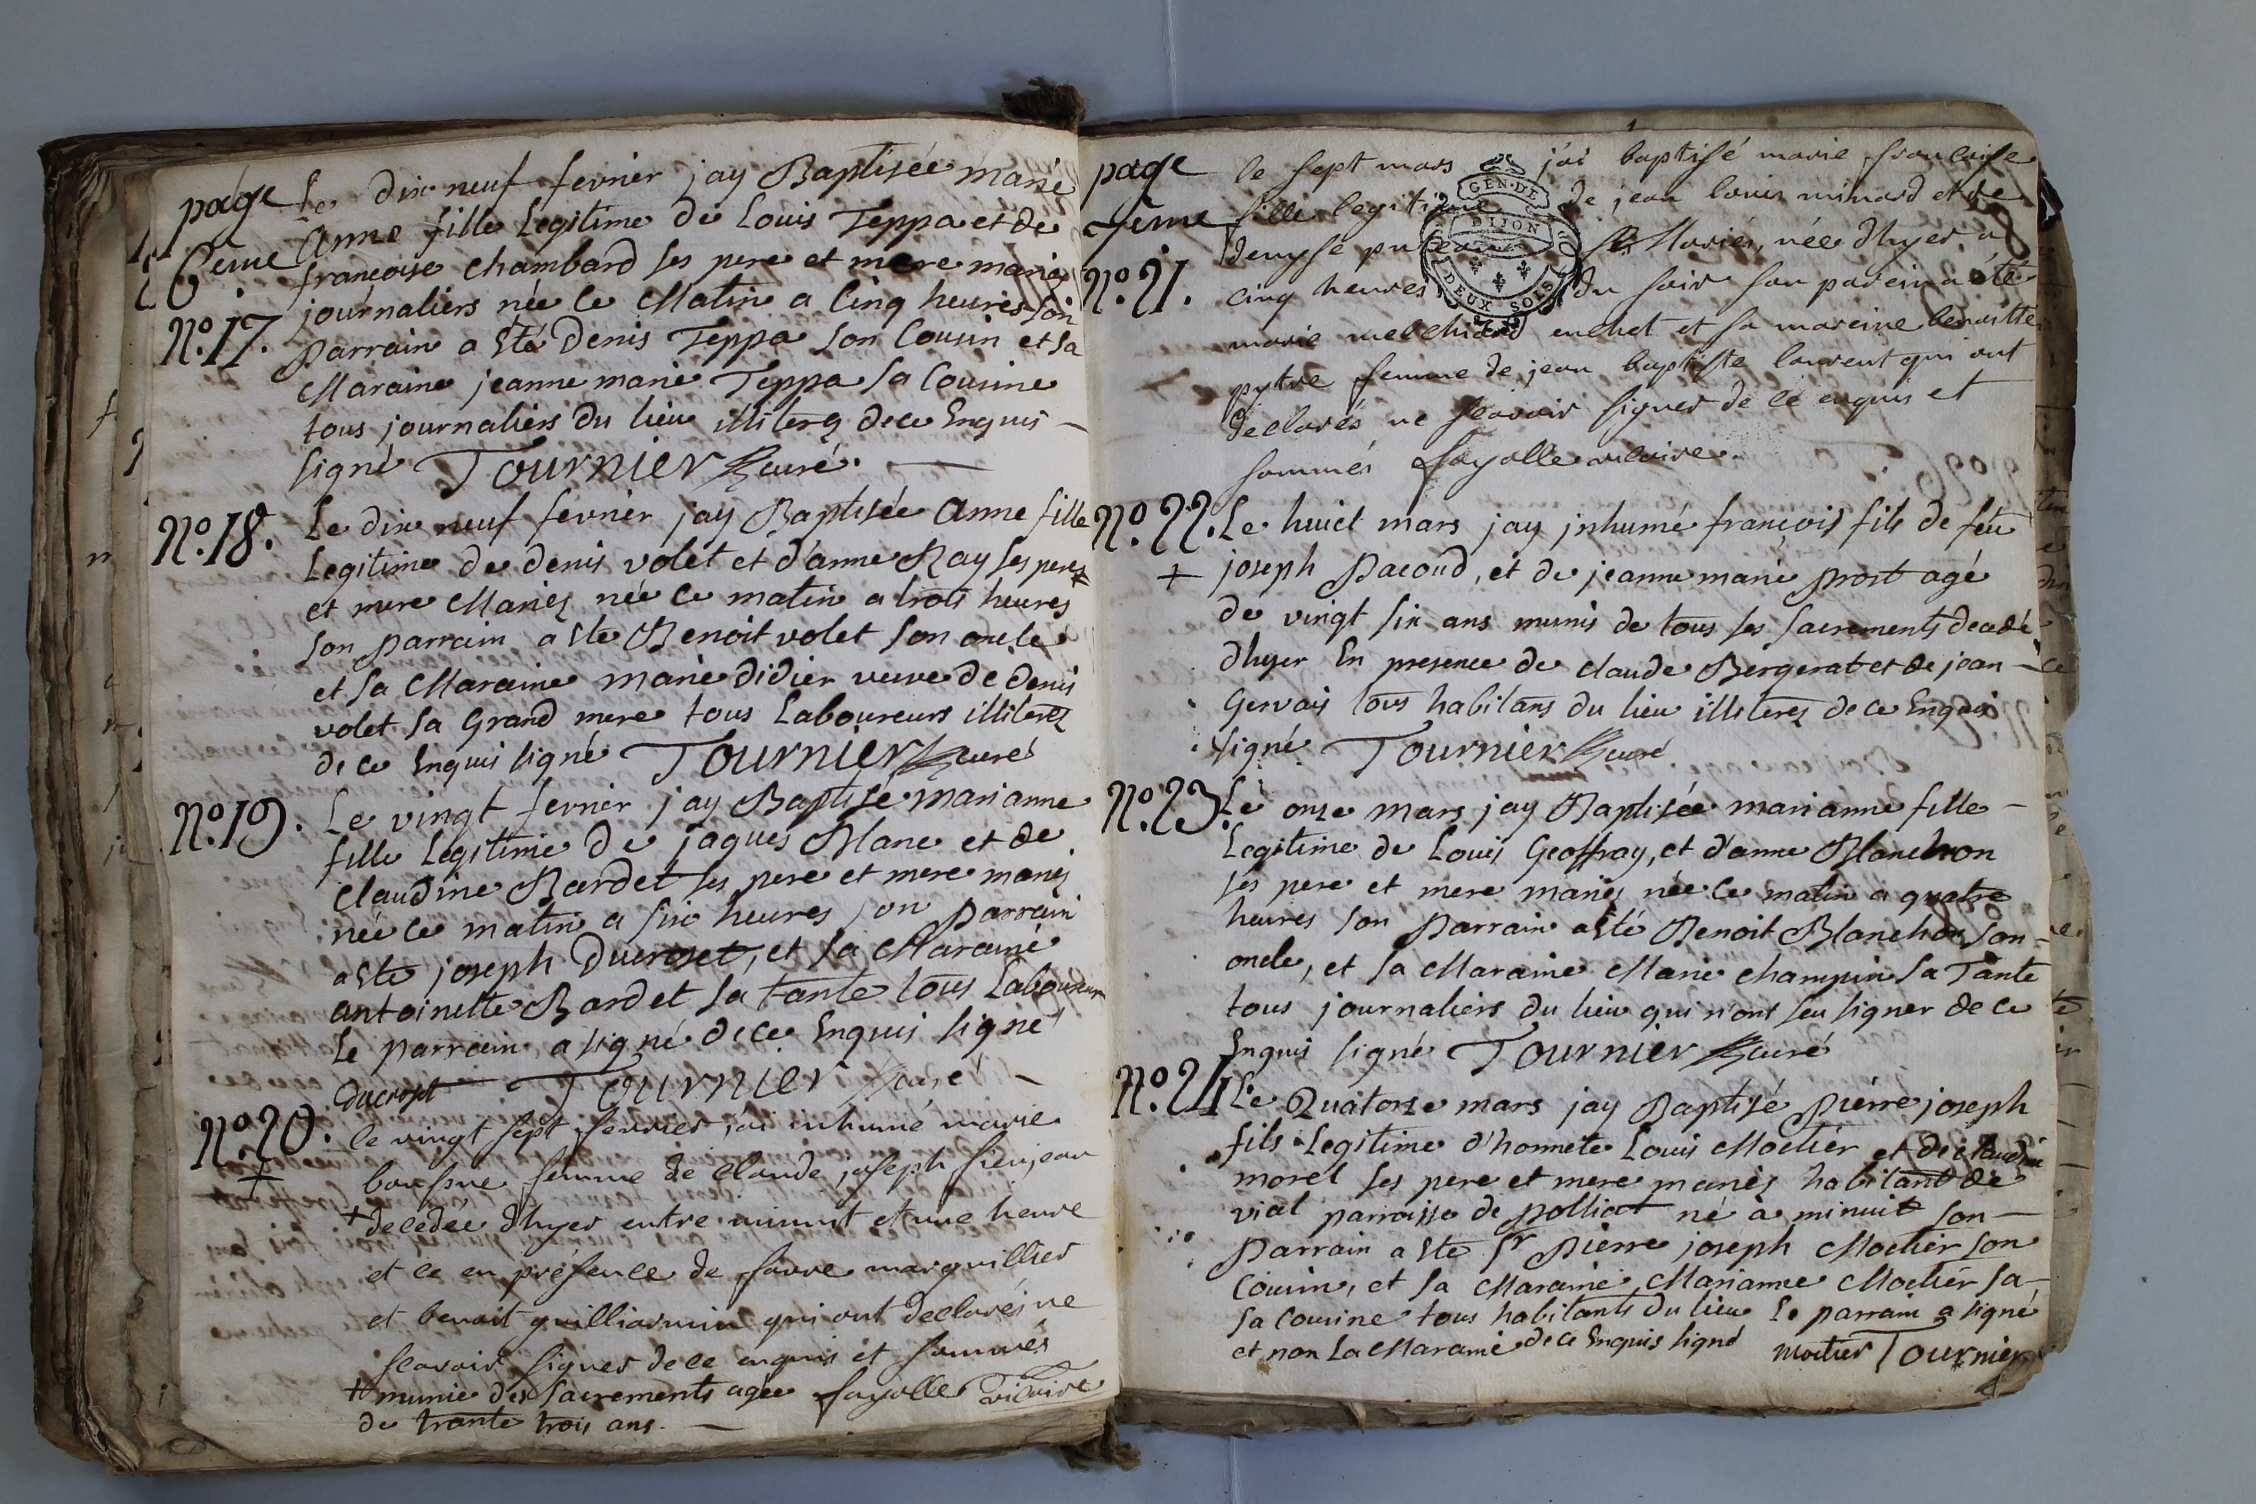 page
6eme
Le dix neuf fevrier jay Baptisée marie
Anne fille Legitime de Louis Teppa et de
françoise chambard ses pere et mere mariés
N°.17.
journaliers née Ce Matin a Cinq heures son
parrain a Eté Denis Teppa son Cousin et sa
Maraine jeanne marie Teppa sa Cousine
tous journaliers du lieu illiterez de ce Enquis
signé Tournier curé.
N°.18.
Le dix neuf fevrier jay Baptisée Anne fille
Legitime de denis volet et d'anne Ray ses pere
et mere Mariez née Ce matin a trois heures
son parrain a Ete Benoit volet son oncle
et sa Maraine marie didier veuve de denis
volet sa Grand mere tous Laboureurs illiterez
de ce Enquis signé Tournier curé
N°.19.
Le vingt fevrier jay Baptisé marianne
fille Legitime de jaques Blanc et de
Claudine Bardet ses pere et mere mariez
née Ce matin a six heures son parrain
a Ete joseph Ducroset, et sa Maraine
antoinette Bardet sa tante tous Laboureurs
Le parrain a signé de ce Enquis signé
Ducroset Tournier curé
N°.20.
+
le vingt sept fevrier jai inhumé marie
femme de Claude joseph
+ decedée d'hyer entre minuit et une heure
et ce en présence de favre marguillier
et benoit guilliarmin qui ont declarés ne
scavoir signer de ce enquis et sommés
+ munie des sacrements agée fayolle vicaire
de trante trois ans.
page
7eme
le sept mars jai baptisé marie francoise
fille legitime de jean louis minard et de
denyse Mariés, née d'hyer a
N°.21.
cinq heures du soir son parein a été
marie melchiord et sa mareine benoitte
pytre femme de jean baptiste laurent qui ont
declarés ne scavoir signer de ce enquis et
sommés fayolle vicaire
GEN. DE
DIJON
DEUX SOLS
N°.22.
+
Le huict mars jay jnhumé françois fils de feu
joseph Pacoud, et de jeanne marie prost agé
de vingt six ans munis de tous ses sacrements decedé
d'hyer En presence de claude Bergerat et de jean
Gervais tous habitans du lieu illiterez de ce Enquis
signé Tournier curé
N°.23.
Le onze mars jay Baptisée marianne fille
Legitime de Louis Geoffray, et d'anne Blanchon
ses pere et mere mariés née Ce matin a quatre
heures son Parrain a Eté Benoit Blanchon son
oncle, et sa Maraine Marie champin sa Tante
tous journaliers du lieu qui n'ont seu signer de ce
Enquis signé Tournier curé
N°.24
Le Quatorze mars jay Baptisé Pierre joseph
fils Legitime d'honnete Louis Moetier et de claudine
morel ses pere et mere mariés habitant de
vial parroisse de polliat né a minuit son
Parrain a Ete Sr Pierre joseph Moetier son
Cousin, et sa Maraine Marianne Moetier sa
sa Cousine tous habitants du lieu Le parrain a signé
et non La Maraine de ce Enquis signé Moetier Tournier